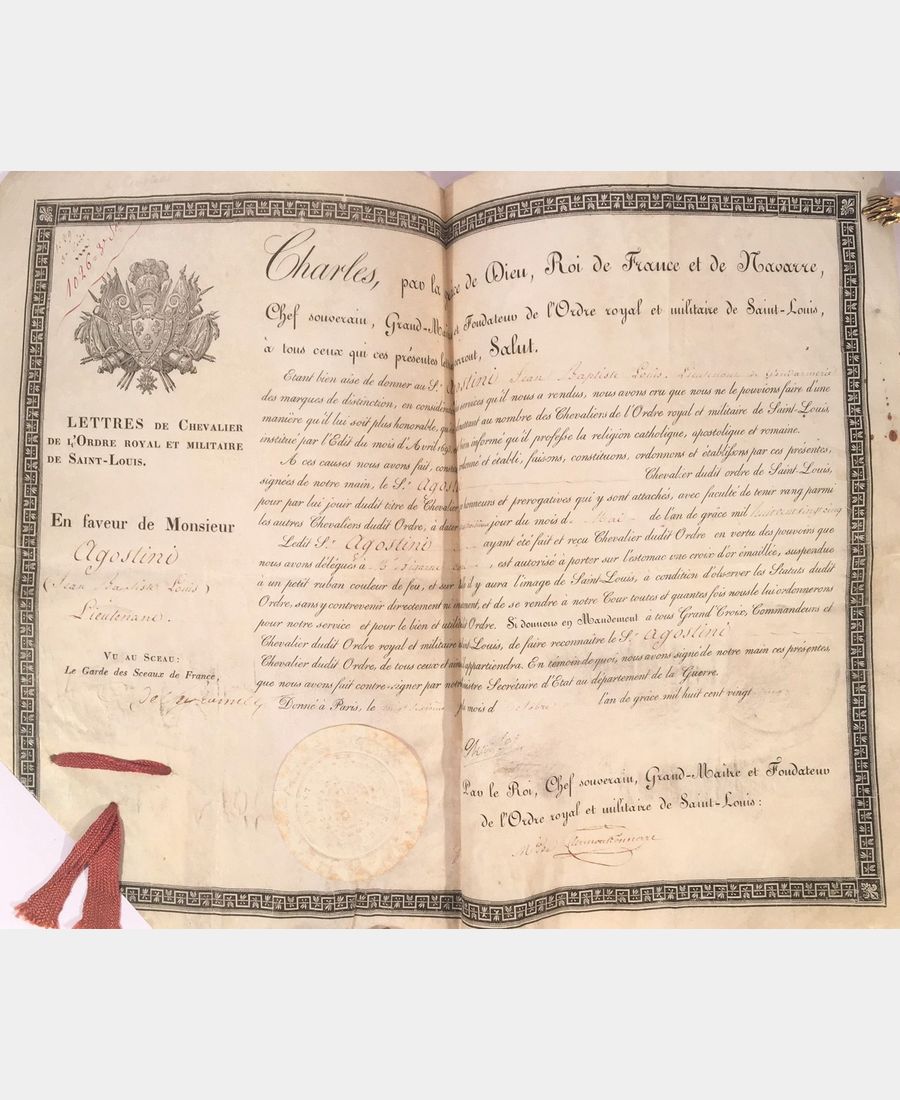 1026
LETTRES DE CHEVALIER
DE L'ORDRE ROYAL ET MILITAIRE
DE SAINT-LOUIS.
En faveur de Monsieur
Agostini
(Jean Baptiste Louis)
Lieutenant.
VU AU SCEAU:
Le Garde des Sceaux de France,
Charles, par la de Dieu, Roi de France et de Navarre,
Chef souverain, Grand- et Fondateur de l'Ordre royal et militaire de Saint-Louis,
à tous ceux qui ces présentes Salut.
Etant bien aise de donner au S.r Agostini Jean Baptiste Louis Lieutenant de Gendarmerie
des marques de distinction, en services qu'il nous a rendus, nous avons cru que nous ne le pouvions faire d'une
manière qu'il lui soit plus honorable, au nombre des Chevaliers de l'Ordre royal et militaire de Saint-Louis,
institué par l'Edit du mois d'Avril informé qu'il professe la religion catholique, apostolique et romaine.
A ces causes nous avons fait, et établi, faisons, constituons, ordonnons et établissons par ces présentes,
signées de notre main, le S.r Chevalier dudit ordre de Saint-Louis,
pour par lui jouir dudit titre de Chevalier honneurs et prerogatives qui y sont attachés, avec faculté de tenir rang parmi
les autres Chevaliers dudit Ordre, à jour du mois d. Mai de l'an de grâce mil
Ledit S.r Agostini ayant été fait et reçu Chevalier dudit Ordre en vertu des pouvoirs que
nous avons délégués à , est autorisé à porter sur l'estomac une croix d'or émaillée, suspendue
à un petit ruban couleur de feu, et sur il y aura l'image de Saint-Louis, à condition d'observer les Statuts dudit
Ordre, sans y contrevenir directement ni et de se rendre à notre Cour toutes et quantes fois nous le lui ordonnerons
pour notre service et pour le bien et Ordre. Si donnons en Mandement à tous Grand'Croix, Commandeurs et
Chevalier dudit Ordre royal et militaire de faire reconnaître le S.r Agostini
Chevalier dudit Ordre, de tous ceux appartiendra. En témoin de quoi, nous avons signé de notre main ces présentes,
que nous avons fait contre-signer par Secrétaire d'Etat au département de la Guerre.
Donné à Paris, le mois d Octobre l'an de grâce mil huit cent vingt
Par le Roi, Chef souverain, Grand-Maitre et Fondateur
de l'Ordre royal et militaire de Saint-Louis: